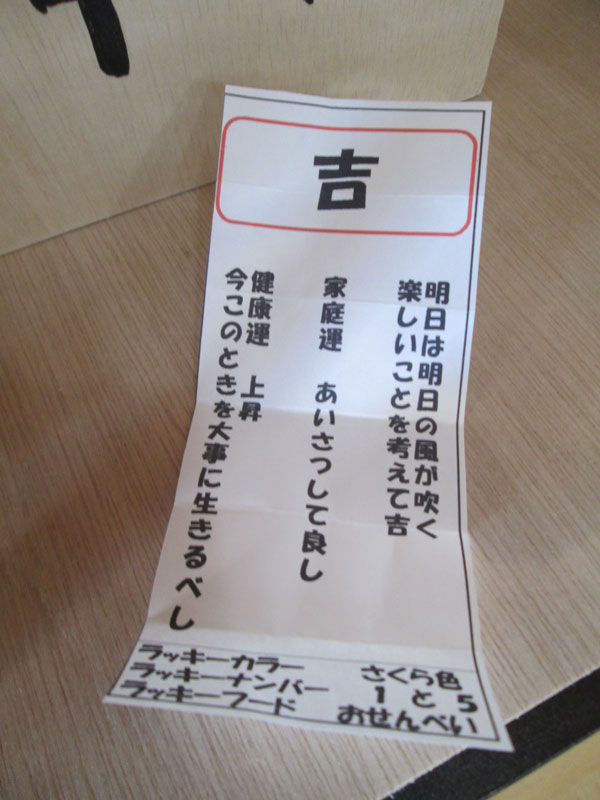 吉
明日は明日の風が吹く
楽しいことを考えて吉
家庭運 あいさつして良し
健康運 上昇
今このときを大事に生きるべし
ラッキーカラー さくら色
ラッキーナンバー 1 と 5
ラッキーフード おせんべい